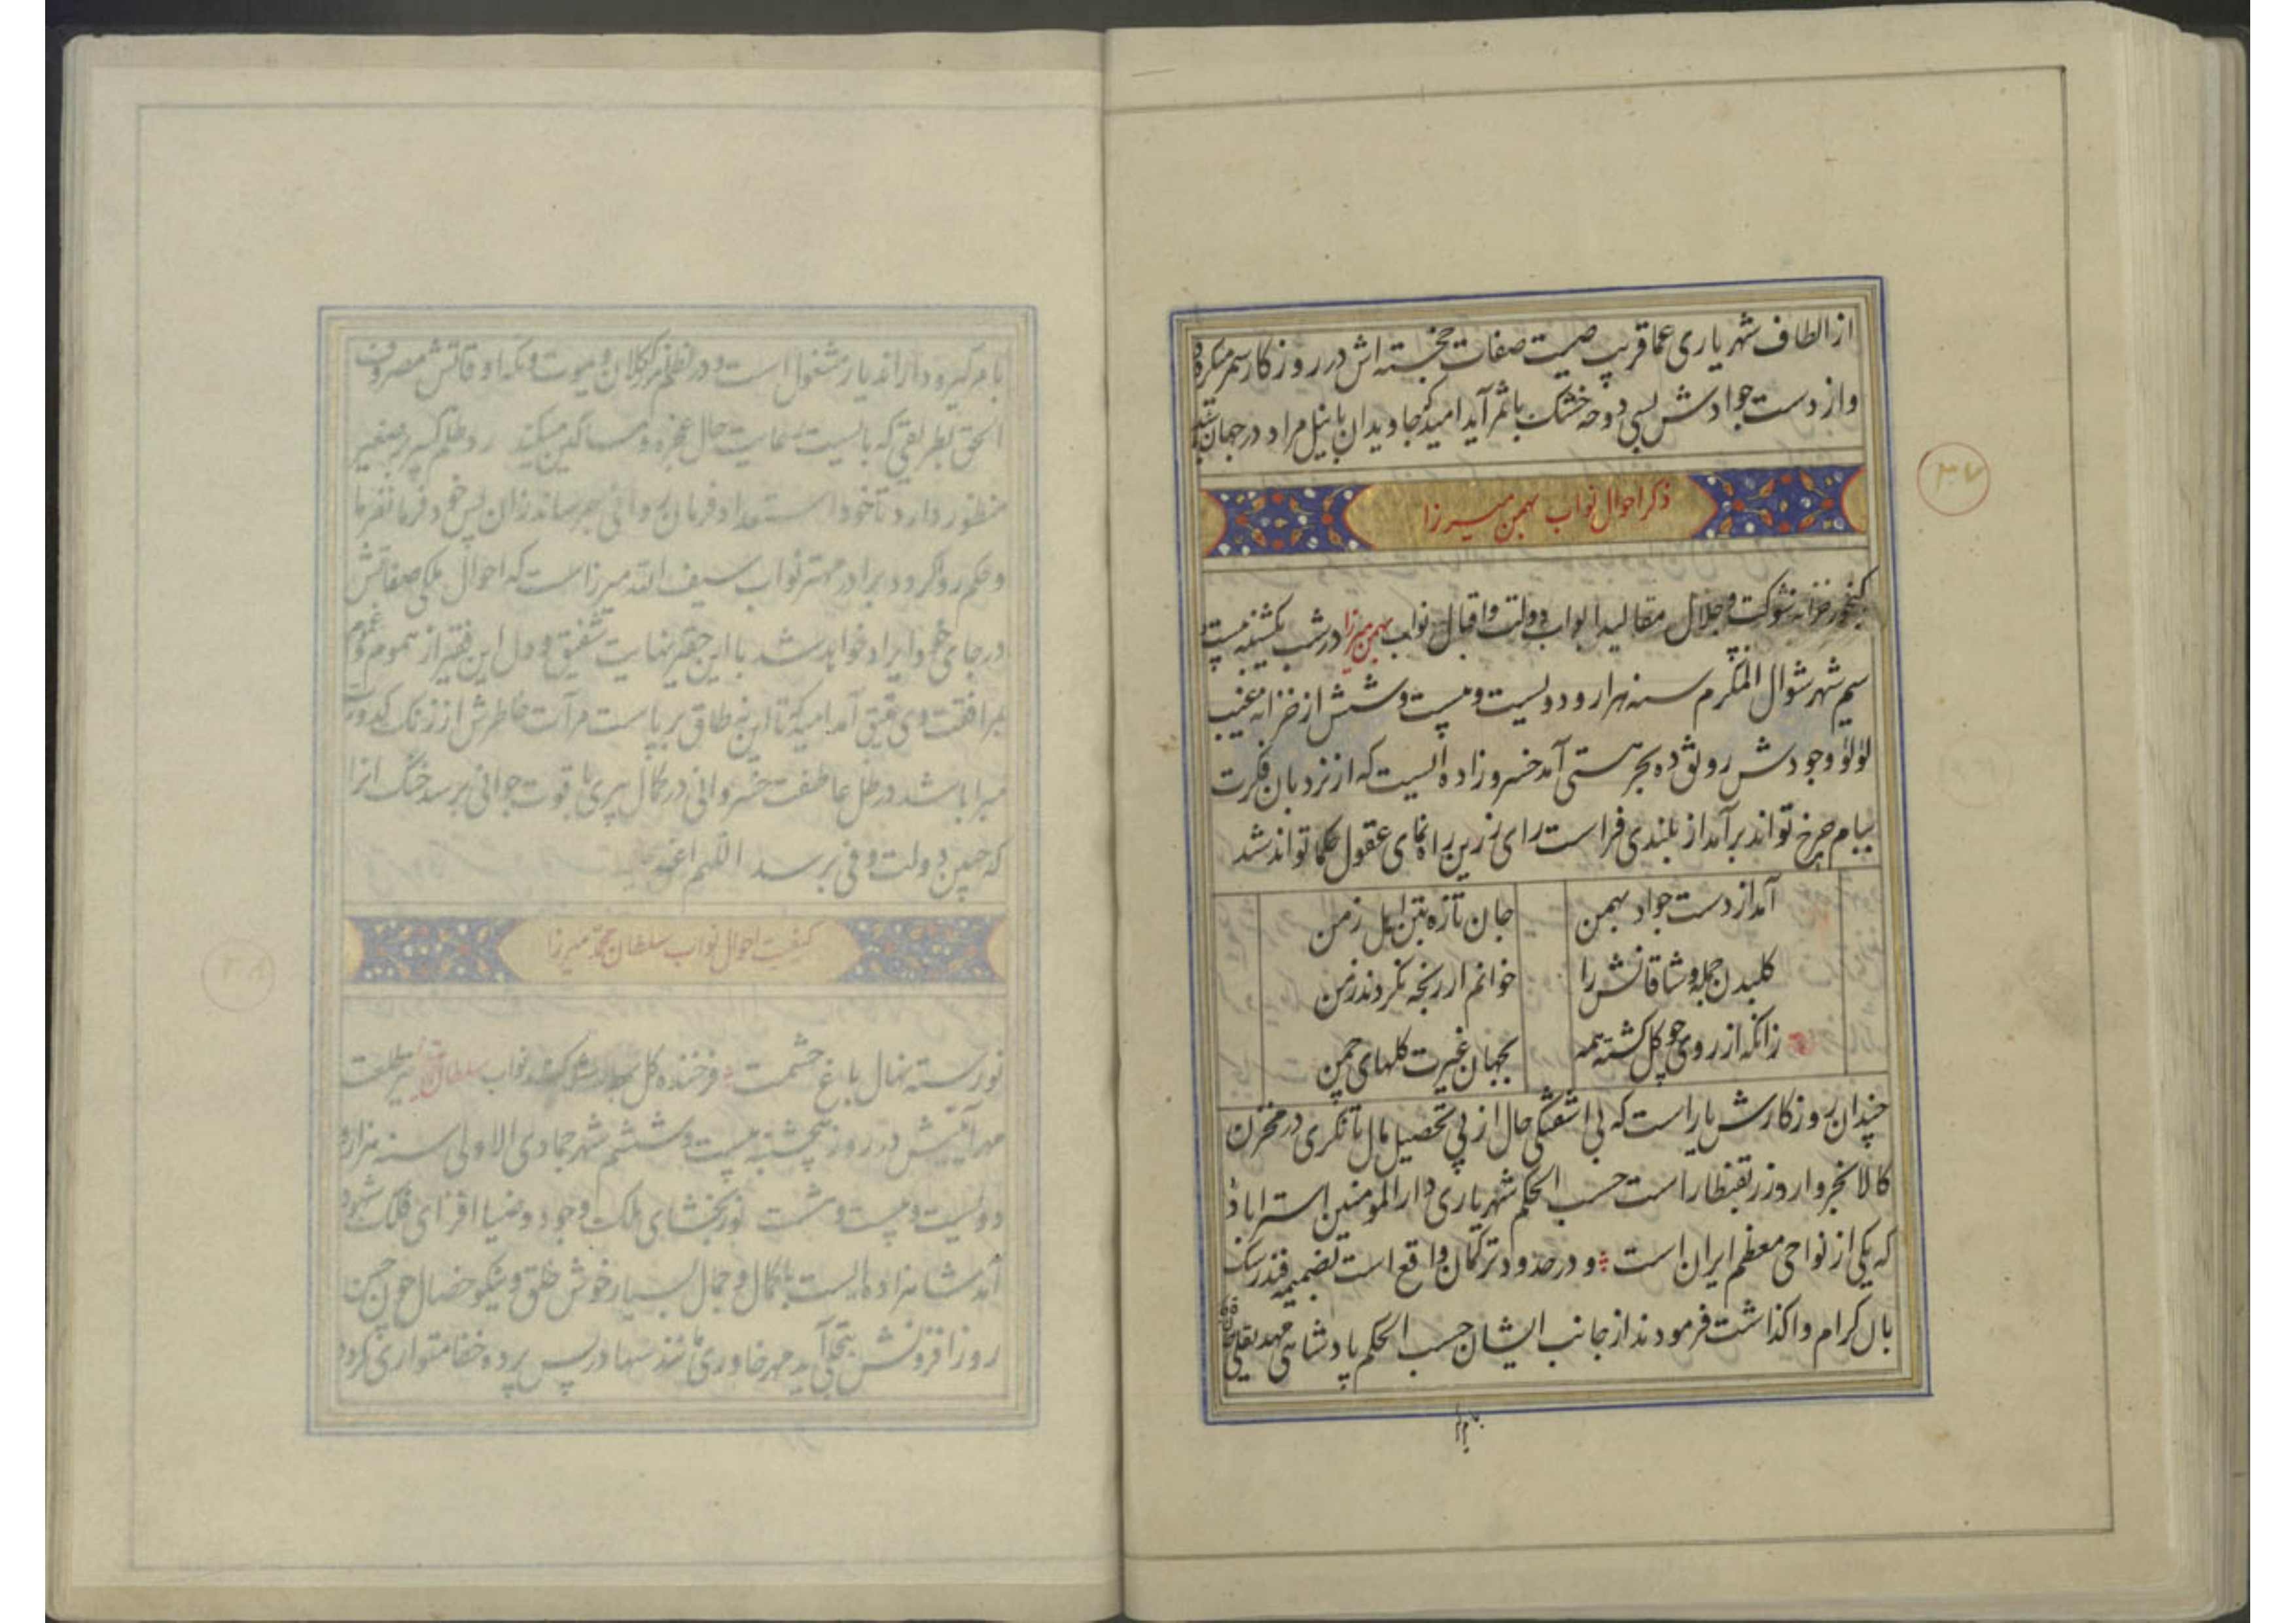 از الطاف شهریاری عماقریب صیت صفات خجسته اش در روزکار سمر میکردد
و از دست جوادش بسی دوحه خشک باثمر آید امید که جاویدان با نیل مراد در جهان
ذکر احوال نواب بهمن میرزا
کنجور خزانه شوکت و جلال مقالید ابواب دولت و اقبال نواب بهمن میرزا در شب یکشنبه بیست و
سیم شهر شوال المکرم سنه هزار و دویست و بیست و شش از خزانه غیب
لؤلؤ وجودش رونق ده بحر هستی آمد خسرو زاده ایست که از نردبان فکرت
ببام چرخ تواند برآمد از بلندی فراست رای زرین راه نمای عقول حکما تواند شد
آمد از دست جواد بهمن
جان تازه بتن اهل زمن
کلبدن جمله وشاقانش را
خوانم ار رنجه نکردند ز من
زانکه از روی چو کل کشته همه
بجهان غیرت کلهای چمن
چندان روزکارش یار است که بی آشفتگی حال از پی تحصیل مال تا نکری در مخزن
کالا بخروار و زر بقنطار است حسب الحکم شهریاری دارالمومنین استراباد
که یکی از نواحی معظم ایران است و در حدود ترکمان واقع است بضمیمه فندرسک
بال کرام واکذاشت فرمودند از جانب ایشان حسب الحکم پادشاهی مهدیقلی خان
بامر
۳۷
بامر کیرودار اندیار مشغول است و در نظم کوکلان و یموت و تکه اوقاتش مصروف
الحق بطریقی که بایست رعایت حال عجزه و مساکین میکند رد ظلم کبیر بر صغیر
منظور دارد تا خود استعداد فرمان روائی بهم رساند زان پس خود فرمانفرما
و حکم روا کردد برادر مهتر نواب سیف الله میرزا است که احوال ملکی صفاتش
در جای خود ایراد خواهد شد با این حقیر نهایت شفیق و دل این فقیر از هموم و غموم
بمرافقت وی عتیق آمد امید که تا این نه طاق بر پاست مرآت خاطرش از زنک کدورت
مبرا باشد در ظل عاطفت خسروانی در کمال پیری با قوت جوانی برسد خنک آنرا
که چنین دولت وفی برسد اللهم
کیفیت احوال نواب سلطان محمد میرزا
نورسته نهال باغ حشمت و فرخنده کل نواب سلطان طلعت
مهر آئینش در روز پنجشنبه بیست و ششم شهر جمادی الاولی سنه هزار و
دویست و بیست و هشت نور بخشای ملک وجود و ضیا افزای فلک شهود
آمد شاهزاده ایست با کمال و جمال بسیار خوش خلق و نیکو خصال چون حسن
روز افزونش بتجلی آید مهر خاوری مانند سها در پس پرده خفا متواری کردد